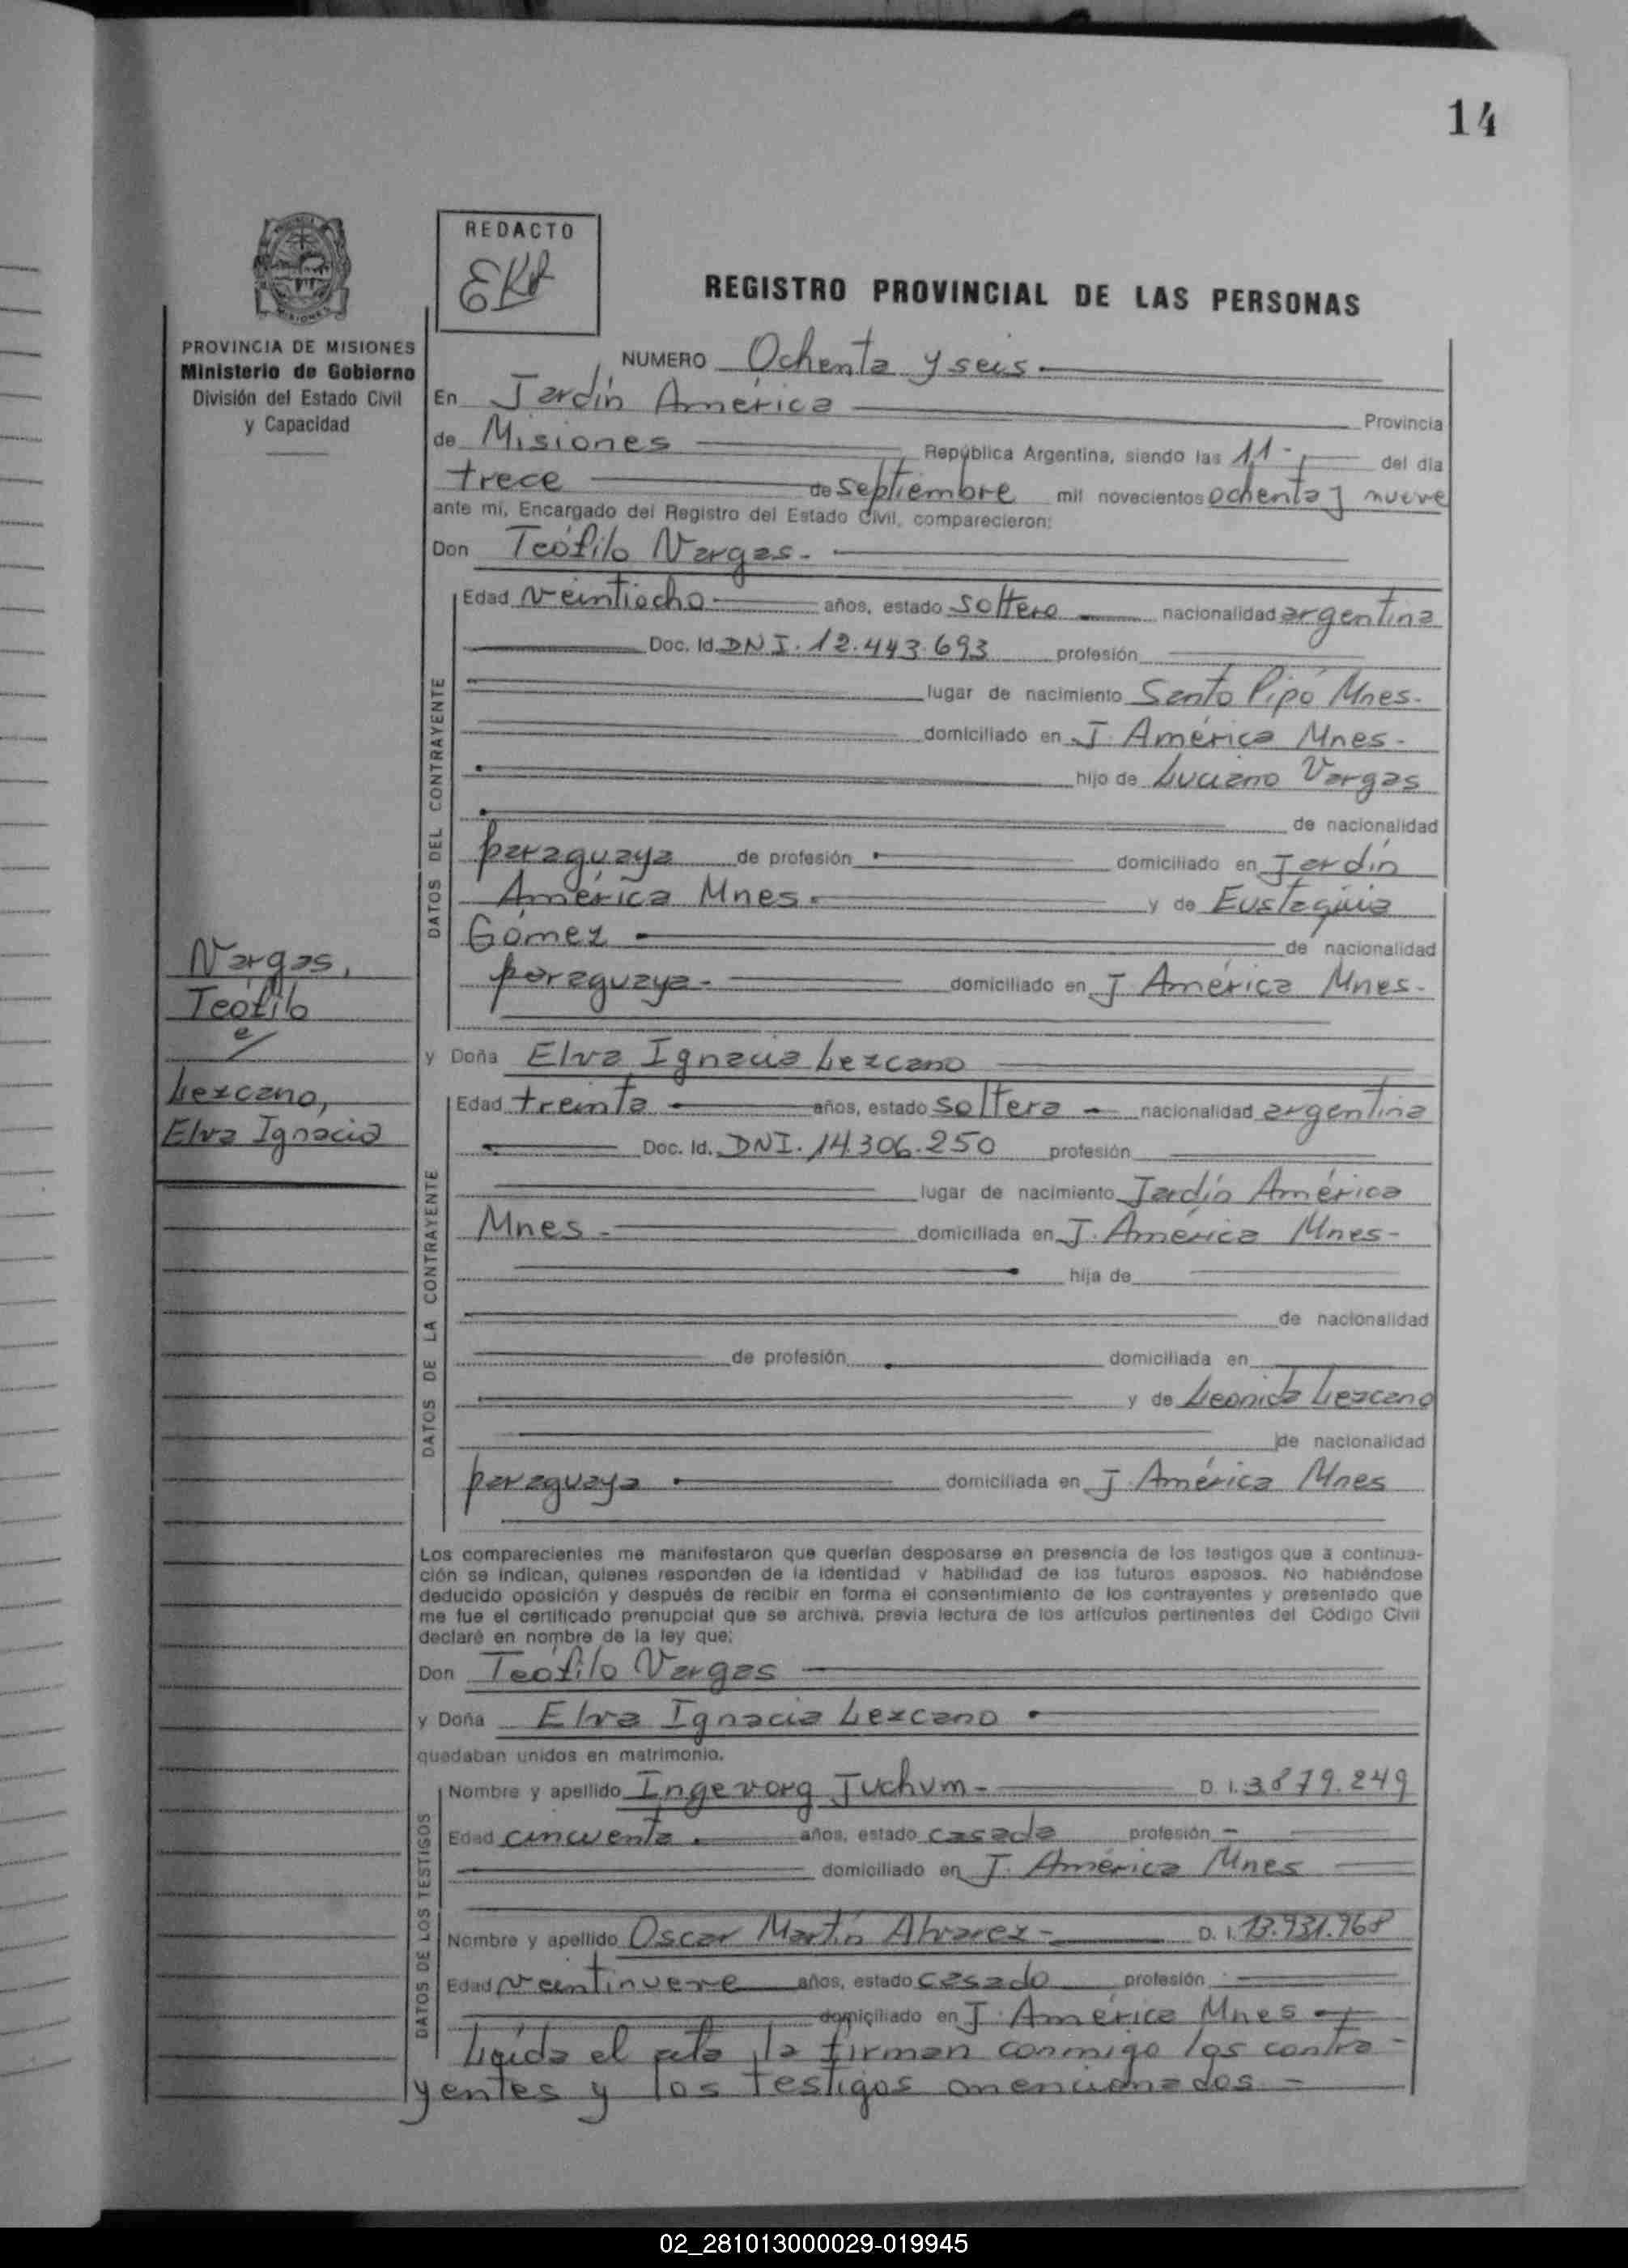 14
REDACTO
EKA
REGISTRO PROVINCIAL DE LAS PERSONAS
PROVINCIA DE MISIONES
Ministerio de Gobierno
División del Estado Civil
y Capacidad
NUMERO Ochenta y seis.
En Jardín América Provincia
de Misiones República Argentina, siendo las 11- del día
trece de septiembre mil novecientos ochenta y nueve
ante mí, Encargado del Registro del Estado Civil, comparecieron:
Don Teófilo Vargas.
DATOS DEL CONTRAYENTE
Edad veintiocho años, estado soltero nacionalidad argentina
Doc. Id. DNI. 12.443.693 profesión
lugar de nacimiento Santo Pipó Mnes.
domiciliado en J. América Mnes.
hijo de Luciano Vargas
de nacionalidad
paraguaya de profesión domiciliado en Jardín
América Mnes. y de Eustaquia
Gómez de nacionalidad
paraguaya. domiciliado en J. América Mnes.
Vargas,
Teófilo
e/
Lezcano,
Elva Ignacia
y Doña Elva Ignacia Lezcano
DATOS DE LA CONTRAYENTE
Edad treinta años, estado soltera nacionalidad argentina
Doc. Id. DNI. 14.306.250 profesión
lugar de nacimiento Jardín América
Mnes - domiciliada en J. América Mnes-
hija de
de nacionalidad
de profesión domiciliada en
y de Leonida Lezcano
de nacionalidad
paraguaya domiciliada en J. América Mnes
Los comparecientes me manifestaron que querían desposarse en presencia de los testigos que a continua-
ción se indican, quienes responden de la identidad y habilidad de los futuros esposos. No habiéndose
deducido oposición y después de recibir en forma el consentimiento de los contrayentes y presentado que
me fue el certificado prenupcial que se archiva, previa lectura de los artículos pertinentes del Código Civil
declaré en nombre de la ley que:
Don Teófilo Vargas
y Doña Elva Ignacia Lezcano
quedaban unidos en matrimonio.
DATOS DE LOS TESTIGOS
Nombre y apellido Ingevorg Juchum- D. I. 3.879.249
Edad cincuenta años, estado casada profesión -
domiciliado en J. América Mnes
Nombre y apellido Oscar Martín Alvarez- D. I. 13.931.968
Edad veintinueve años, estado casado profesión
domiciliado en J. América Mnes
Leída el acta, la firman conmigo los contra-
yentes y los testigos mencionados -
02_281013000029-019945